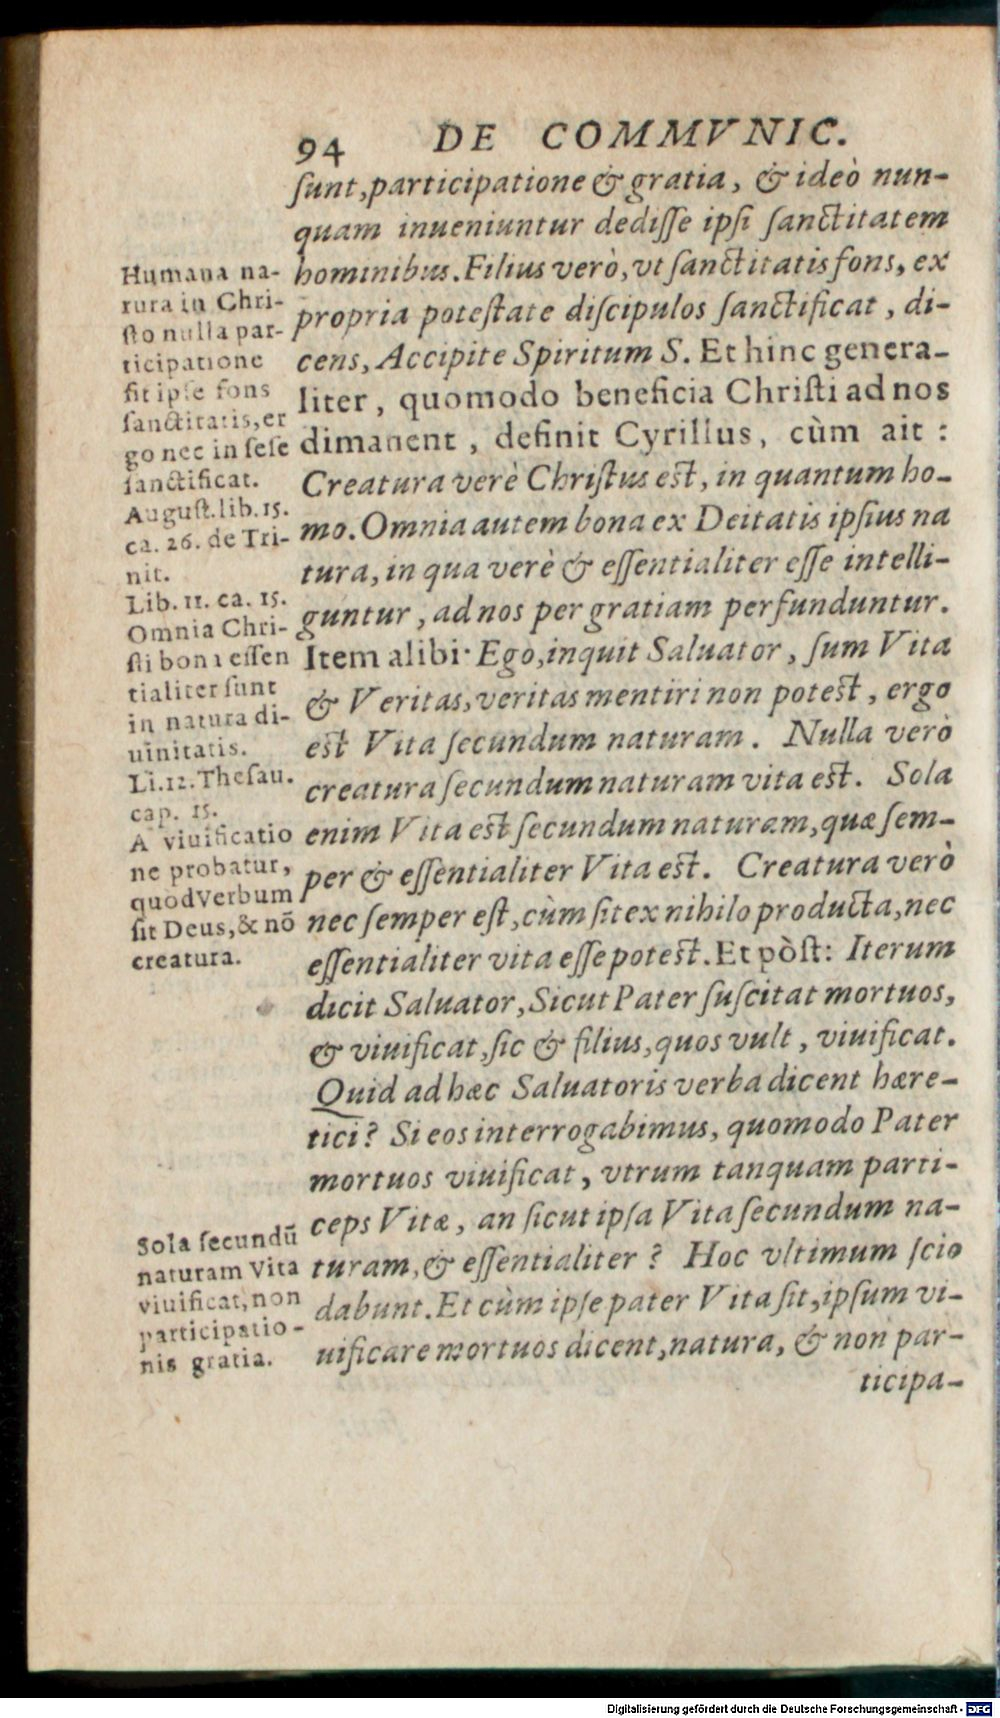 94 DE COMMVNIC.
ſunt, participatione & gratia, & ideò nun-
quam inueniuntur dediſſe ipſi ſanctitatem
hominibus. Filius verò, vt ſanctitatis fons, ex
propria poteſtate diſcipulos ſanctificat, di-
cens, Accipite Spiritum S. Et hinc genera-
liter, quomodo beneficia Chriſti ad nos
dimanent, definit Cyrillus, cùm ait:
Creatura verè Chriſtus eſt, in quantum ho-
mo. Omnia autem bona ex Deitatis ipſius na
tura, in qua verè & eſſentialiter eſſe intelli-
guntur, ad nos per gratiam perfunduntur.
Item alibi. Ego, inquit Saluator, ſum Vita
& Veritas, veritas mentiri non poteſt, ergo
eſt Vita ſecundum naturam. Nulla verò
creatura ſecundum naturam vita eſt. Sola
enim Vita eſt ſecundum naturam, quæ ſem-
per & eſſentialiter Vita eſt. Creatura verò
nec ſemper eſt, cùm ſit ex nihilo producta, nec
eſſentialiter vita eſſe poteſt. Et pòſt: Iterum
dicit Saluator, Sicut Pater ſuſcitat mortuos,
& viuificat, ſic & filius, quos vult, viuificat.
Quid ad hæc Saluatoris verba dicent hære-
tici? Si eos interrogabimus, quomodo Pater
mortuos viuificat, vtrum tanquam parti-
ceps Vitæ, an ſicut ipſa Vita ſecundum na-
turam, & eſſentialiter? Hoc vltimum ſcio
dabunt. Et cùm ipſe pater Vita ſit, ipſum vi-
uificare mortuos dicent, natura, & non par-
ticipa-
Humana na-
rura in Chri-
ſto nulla par-
ticipatione
fit ipſe fons
ſanctitatis, er
go nec in ſeſe
ſanctificat.
Auguſt. lib. 15.
ca. 26. de Tri-
nit.
Lib. 11. ca. 15.
Omnia Chri-
ſti bona eſſen
tialiter ſunt
in natura di-
uinitatis.
Li. 12. Theſau.
cap. 15.
A viuificatio
ne probatur,
quod Verbum
ſit Deus, & nō
creatura.
Sola ſecundū
naturam Vita
viuificat, non
participatio-
nis gratia.
Digitalisierung gefördert durch die Deutsche Forschungsgemeinschaft - DFG